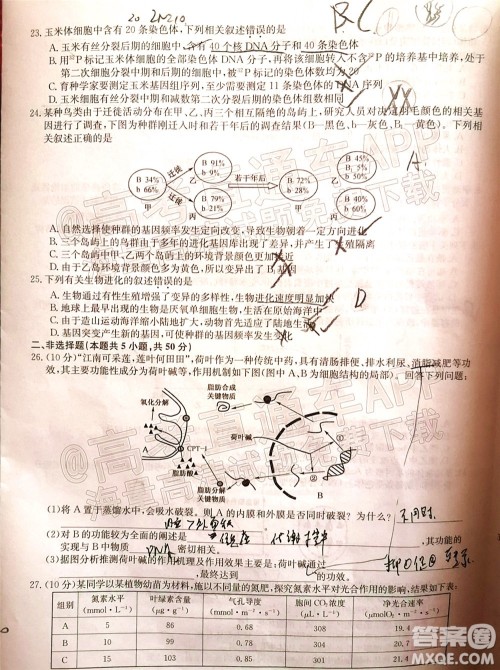 20 2n=20
BC
23.玉米体细胞中含有20条染色体,下列相关叙述错误的是
A.玉米有丝分裂后期的细胞中,含有40个核DNA分子和40条染色体
B.用³²P标记玉米体细胞的全部染色体DNA分子,再将该细胞转入不含³²P的培养基中培养,处于
第二次细胞分裂中期和后期的细胞中,被³²P标记的染色体数均为20
C.育种学家要测定玉米基因组序列,至少需要测定11条染色体的DNA序列
D.玉米细胞有丝分裂中期和减数第二次分裂后期的染色体组数相同
24.某种鸟类由于迁徙活动分布在甲、乙、丙三个相互隔绝的岛屿上,研究人员对决定羽毛颜色的相关基
因进行了调查,下图为种群刚迁入时和若干年后的调查结果(B—黑色、b—灰色、B₁—黄色)。下列相
关叙述正确的是
A.
B 91% b 9%
B 45% b 50% B₁ 5%
迁徙
乙
乙
B 34% b 66%
若干年后
B 72% b 28%
甲
迁徙
甲
B 79% b 21%
B 40% b 60%
丙
丙
A.自然选择使种群的基因频率发生定向改变,导致生物朝着一定方向进化
B.三个岛屿上的鸟群由于多年的进化基因库出现了差异,并产生了生殖隔离
C.三个岛屿中甲、乙两个岛屿上的环境背景颜色更加接近
D.由于乙岛环境背景颜色多为黄色,所以变异出了B₁基因
25.下列有关生物进化的叙述错误的是
A.生物通过有性生殖增强了变异的多样性,生物进化速度明显加快
B.地球上最早出现的生物是厌氧单细胞生物,生活在原始海洋中
C.由于造山运动海洋缩小陆地扩大,动物首先适应了陆地生活
D.基因突变产生新的基因,可使种群的基因频率发生变化
D
二、非选择题(本题共5小题,共50分)
26.(10分)“江南可采莲,莲叶何田田”,荷叶作为一种传统中药,具有清肠排便、排水利尿、消脂减肥等功
效,其主要功能性成分为荷叶碱等,作用机制如下图(图中A、B为细胞结构的局部)。回答下列问题:
氧化分解
脂肪合成
关键物质
荷叶碱
CPT-1
脂肪酸
脂肪分解
关键物质
A
B
①
②
(1)将A置于蒸馏水中,会吸水破裂。则A的内膜和外膜是否同时破裂?为什么?不同时
(2)对B的功能较为全面的阐述是
,其功能的
实现与B中物质DNA密切相关。
(3)据图分析推测荷叶碱的作用机理及作用效果主要是:荷叶碱通过
,最终达到的功效。
27.(10分)某同学以某植物幼苗为材料,施以不同量的氮肥,探究氮素水平对光合作用的影响,结果如下表:
组别 氮素水平(mmol·L⁻¹) 叶绿素含量(μg·g⁻¹) 气孔导度(mmol·m⁻²·s⁻¹) 胞间CO₂浓度(μL·L⁻¹) 净光合速率(μmolO₂·m⁻²·s⁻¹)
A 5 86 0.68 308 19.4
B 10 99 0.78 304 20.7
C 15 103 0.85 301